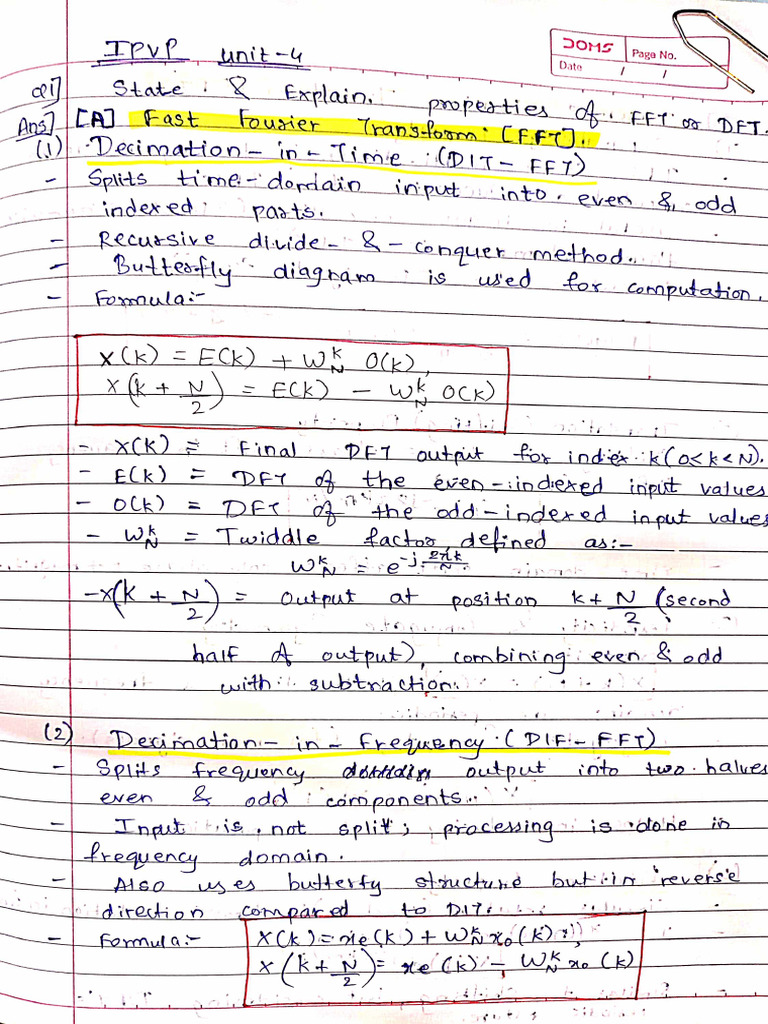 IPVP unit-4
DOMS Page No.
Date / /
Q1] State & Explain properties of FFT or DFT.
Ans] [A] Fast Fourier Transform [FFT].
(1) Decimation-in-Time (DIT-FFT)
- Splits time-domain input into even & odd
indexed parts.
- Recursive divide-&-conquer method.
- Butterfly diagram is used for computation.
- Formula:-
X(k) = E(k) + W_N^k O(k),
X(k + N/2) = E(k) - W_N^k O(k)
- X(k) = Final DFT output for index k (0<k<N).
- E(k) = DFT of the even-indexed input values
- O(k) = DFT of the odd-indexed input values
- W_N^k = Twiddle factor, defined as:-
W_N^k = e^-j 2πk/N
- X(k + N/2) = Output at position k + N/2 (second
half of output), combining even & odd
with subtraction.
(2) Decimation-in-Frequency (DIF-FFT)
- Splits frequency domain output into two halves
even & odd components.
- Input is not split; processing is done in
frequency domain.
- Also uses butterfy structure but in reverse
direction compared to DIT.
- Formula:- X(k) = xe(k) + W_N^k xo(k),
X(k + N/2) = xe(k) - W_N^k xo(k)